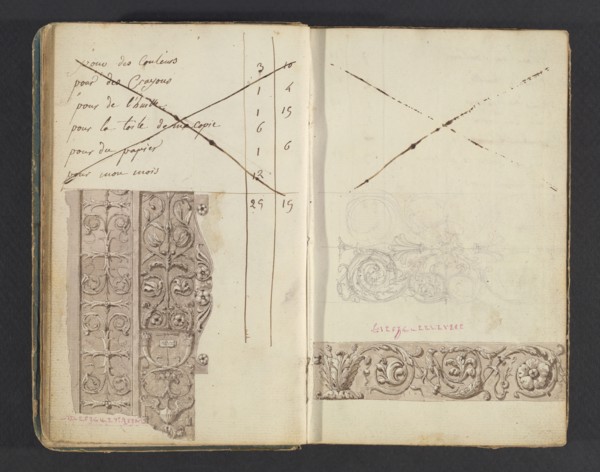 pour des Couleurs 3 10
pour des Crayons 1 4
pour de l'huille 1 15
pour la toile de ma Copie 6
pour du papier 1 6
pour mon mois 12
25 15